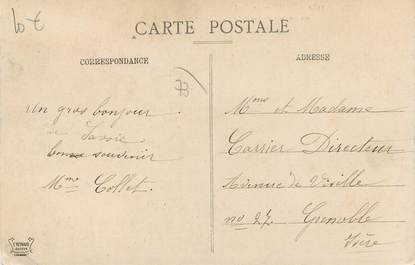 10 €
CARTE POSTALE
CORRESPONDANCE
ADRESSE
Un gros bonjour
de Savoie
bons souvenir
Mme Collet.
Mme et Madame
Carrier Directeur
Avenue de Vizille
no 27. Grenoble
Isère